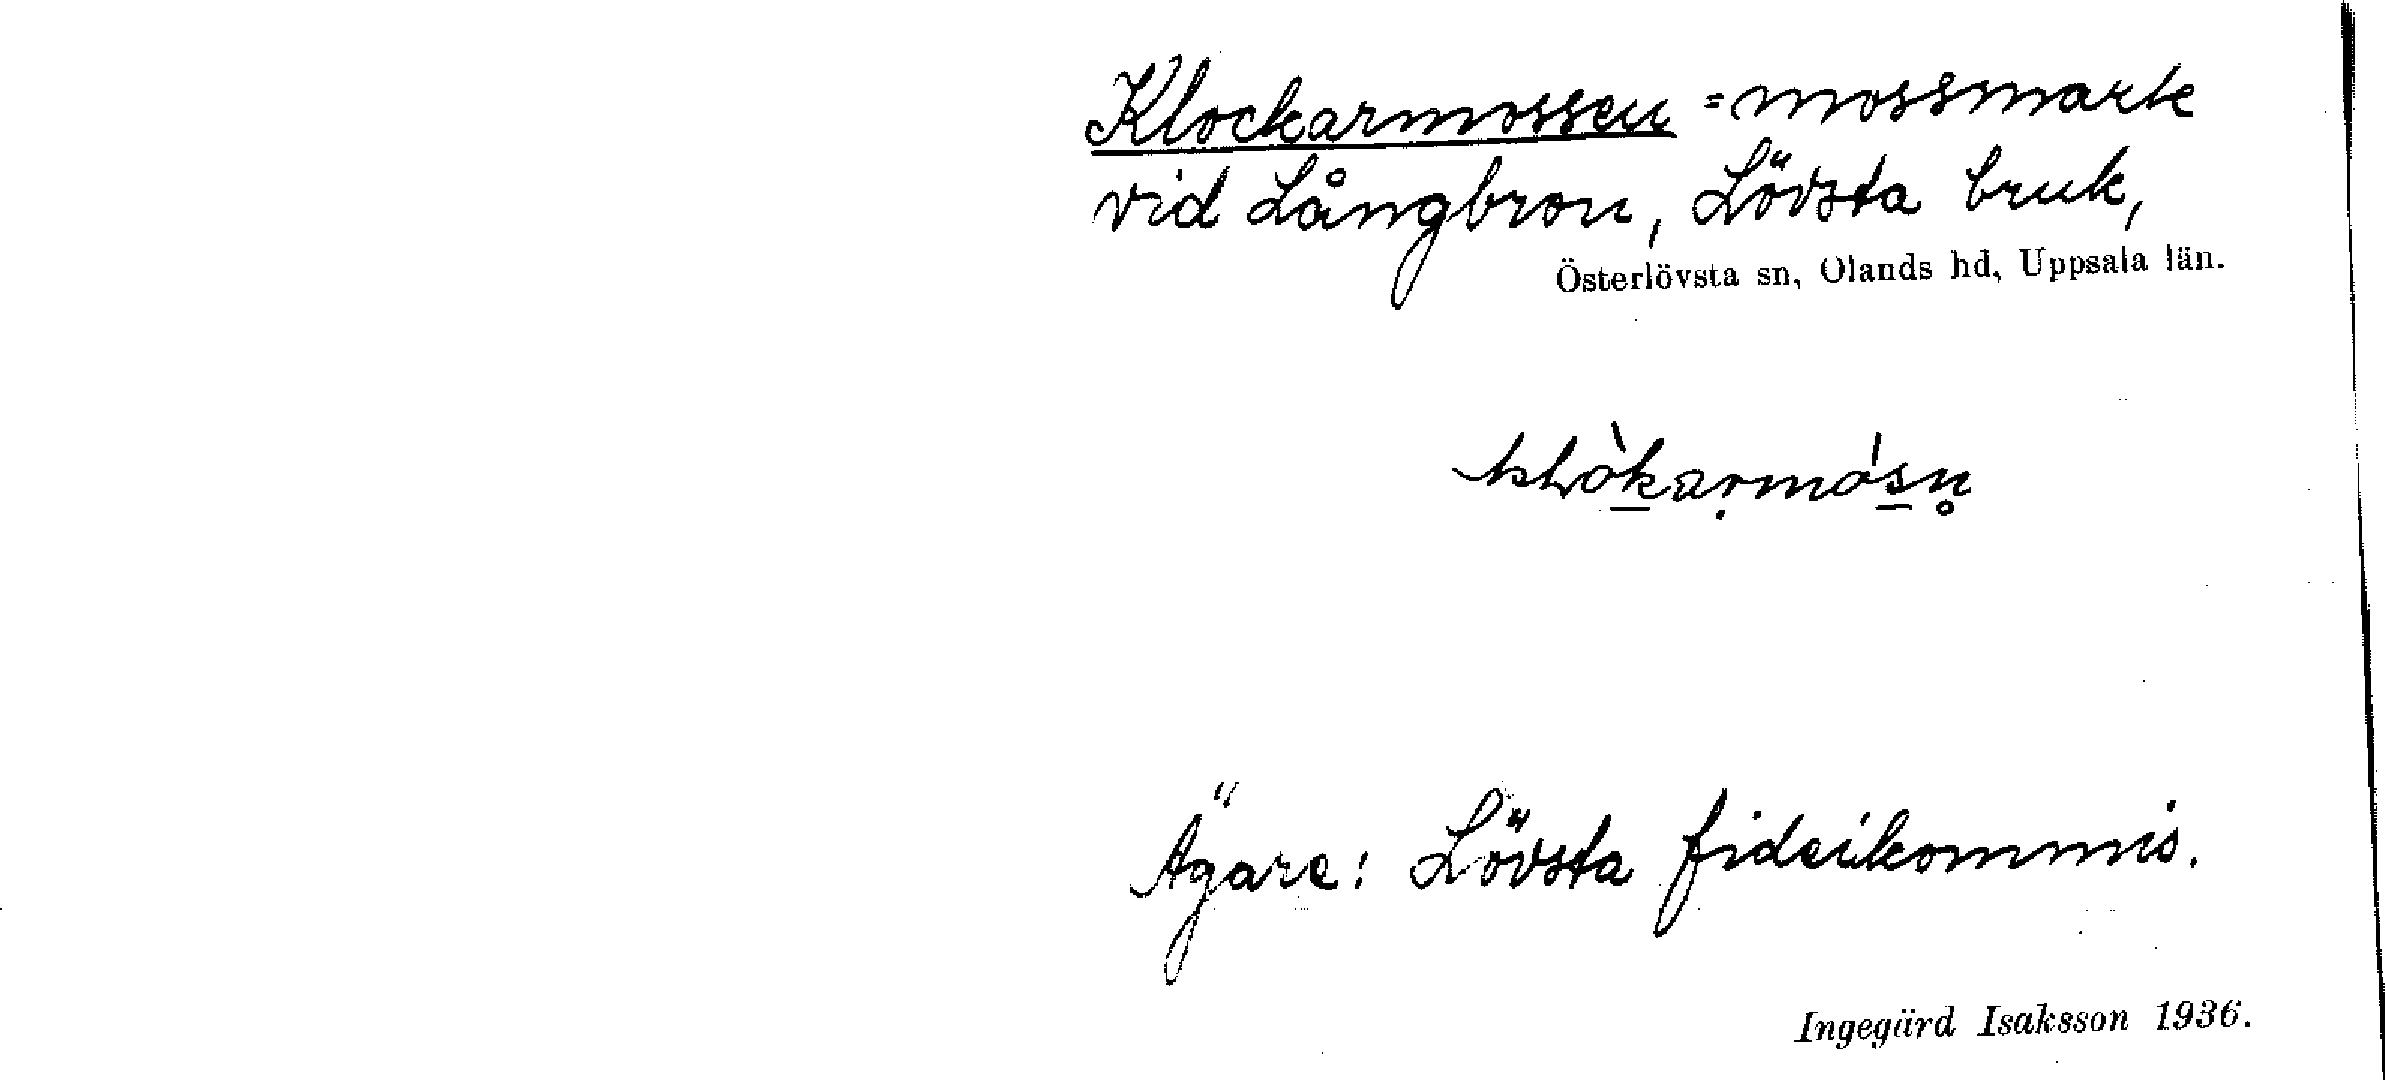 Klockarmossen = mossmark
vid Långbron, Lövsta bruk,
Österlövsta sn, Olands hd, Uppsala län.
Ägare: Lövsta fideikommis.
Ingegärd Isaksson 1936.